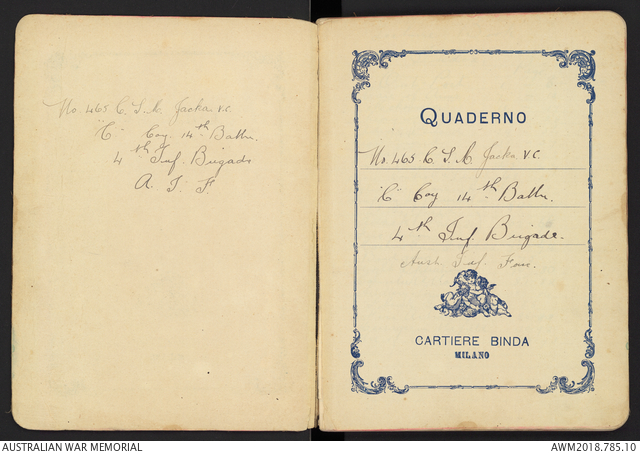 No. 465 C. S. M. Jacka V.C.
"C" Coy 14th Battn.
4th Inf. Brigade
A. I. F.
QUADERNO
No. 465 C. S. M. Jacka V.C.
"C" Coy 14th Battn.
4th Inf. Brigade.
Aust. Inf. Force.
CARTIERE BINDA
MILANO
AUSTRALIAN WAR MEMORIAL
AWM2018.785.10